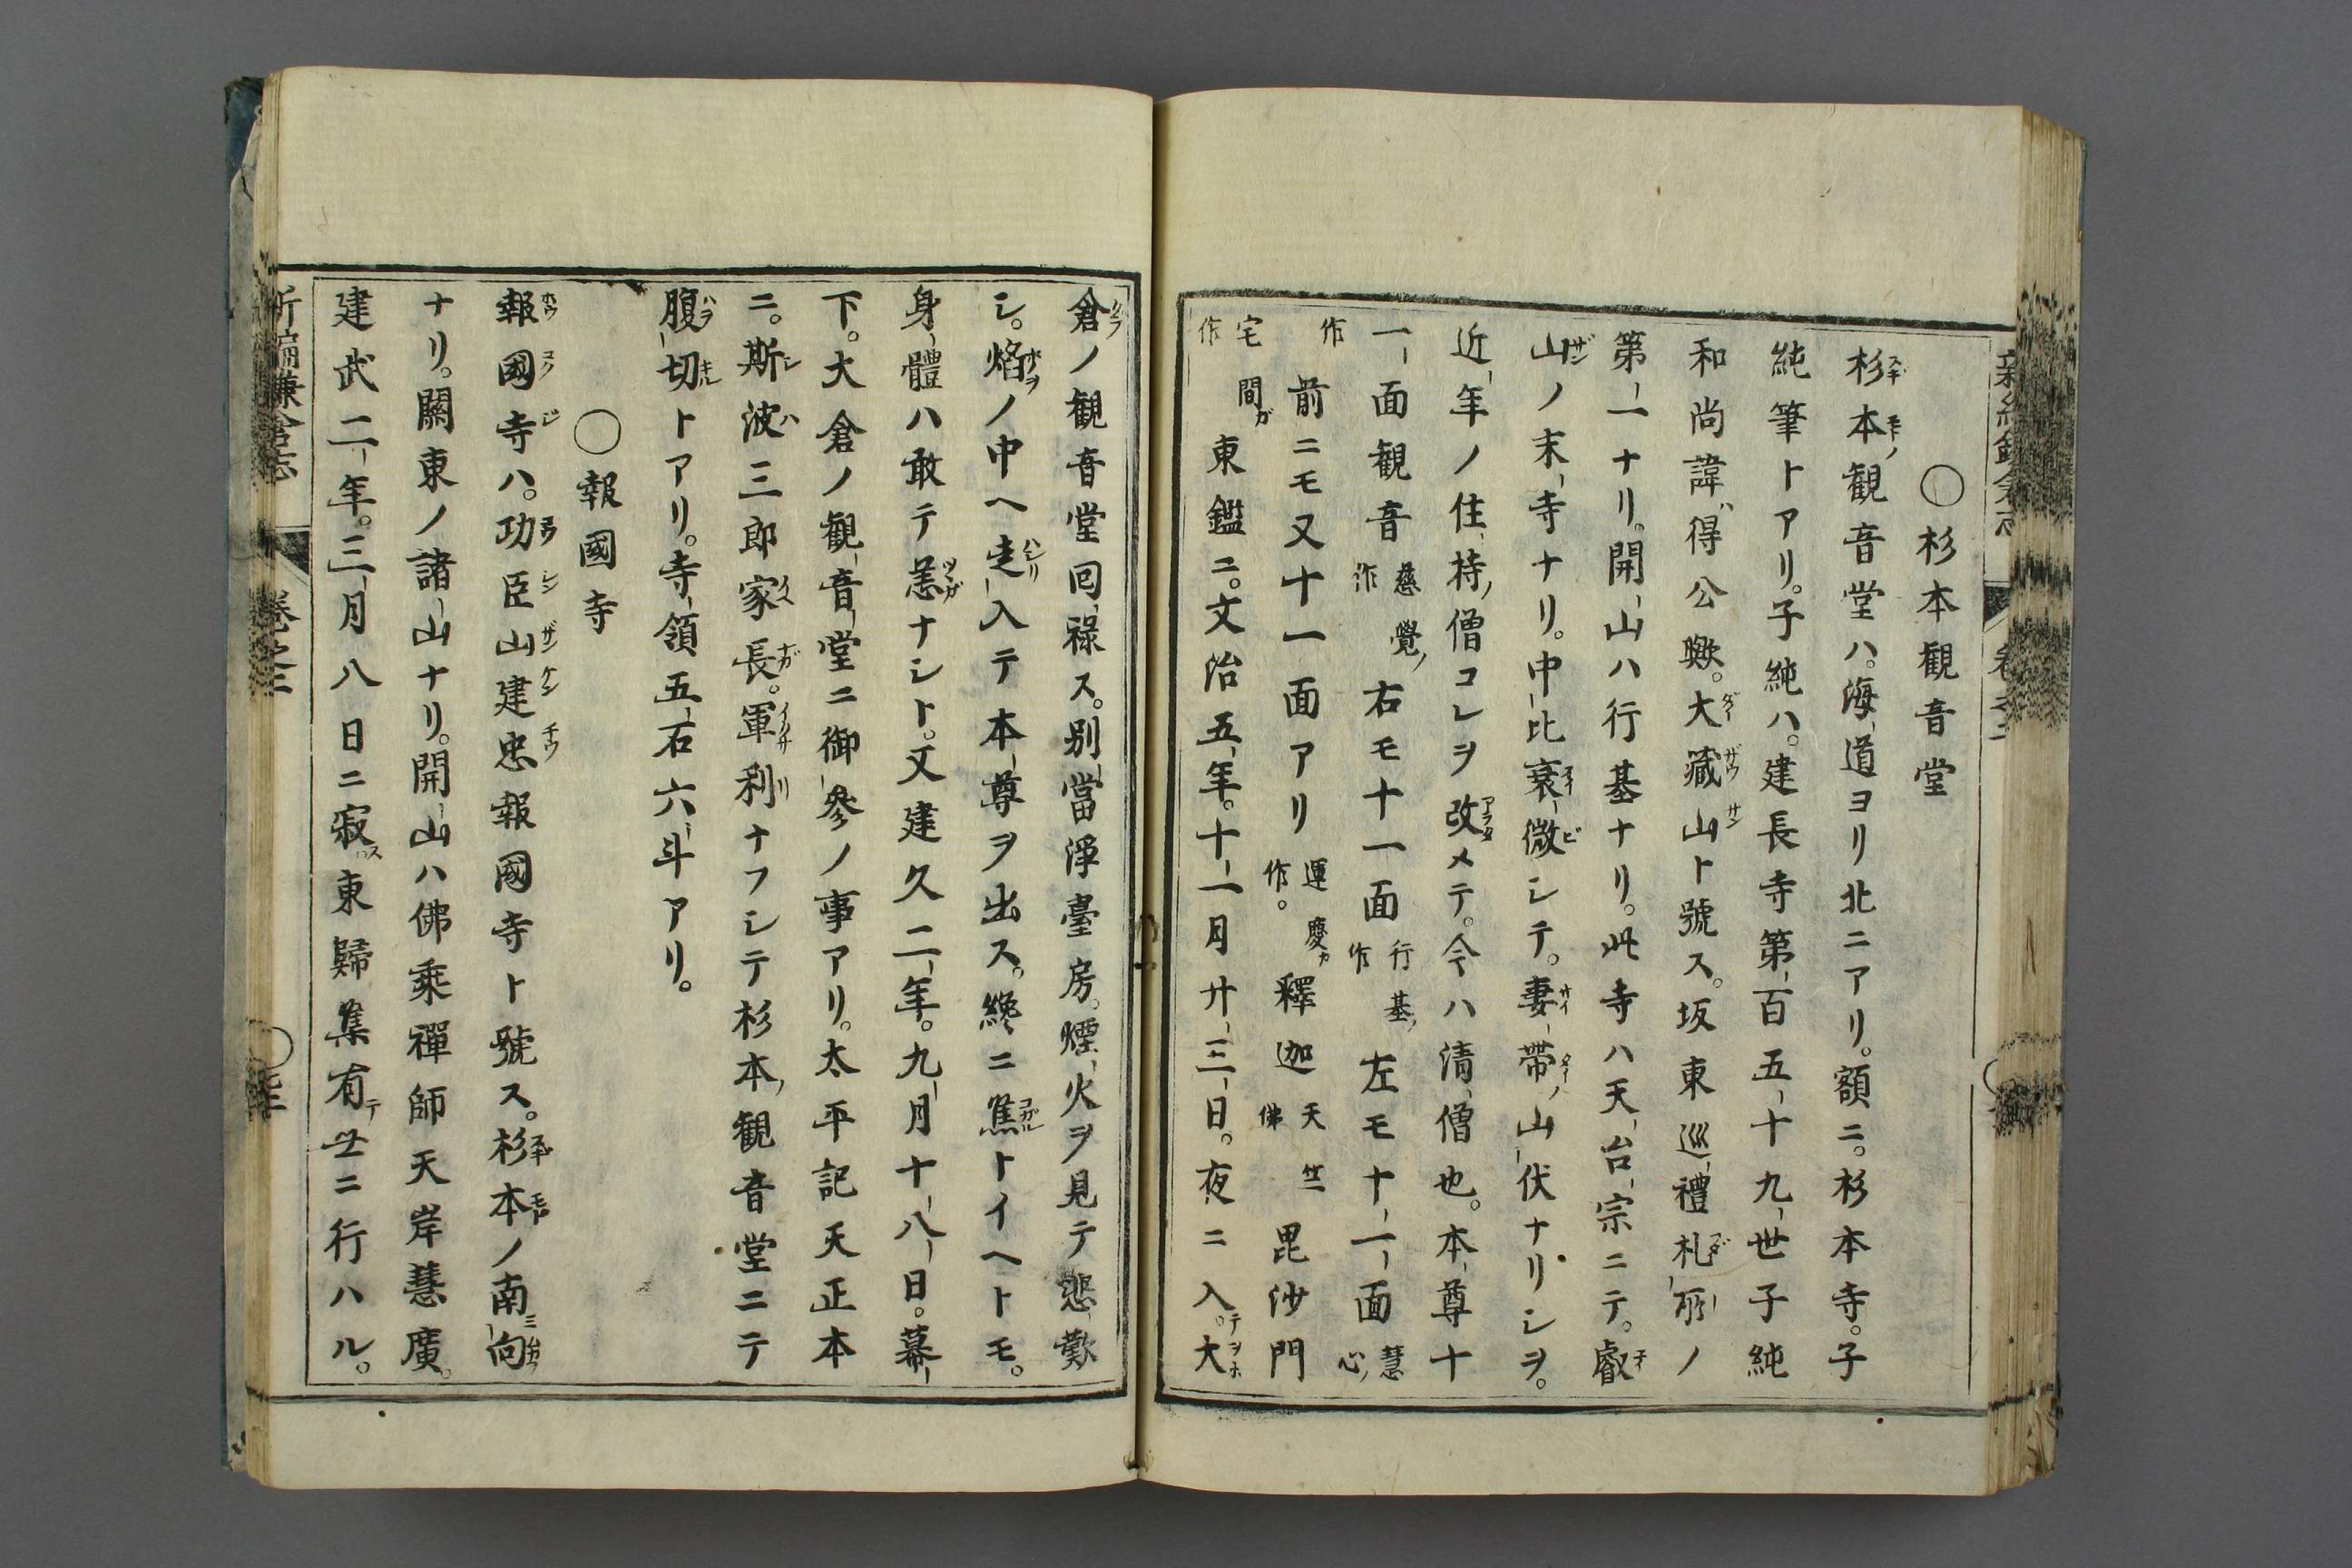 〇杉本観音堂
杉本観音堂ハ。海道ヨリ北ニアリ。額ニ。杉本寺。子
純筆トアリ。子純ハ。建長寺第百五十九世子純
和尚諱ハ得公歟。大藏山ト號ス。坂東巡禮札所ノ
第一ナリ。開山ハ行基ナリ。此寺ハ天台宗ニテ。叡
山ノ末寺ナリ。中比衰微シテ。妻帶ノ山伏ナリシヲ。
近年ノ住持ノ僧コレヲ改メテ。今ハ清僧也。本尊十
一面観音慈覺ノ作右モ十一面行基ノ作左モ十一面慧心ノ
作前ニモ又十一面アリ運慶カ作。釋迦天竺佛毘沙門
宅間ガ作東鑑ニ。文治五年。十一月廿三日。夜ニ入テ。大
倉ノ観音堂囘祿ス。別當淨臺房。煙火ヲ見テ悲歎
シ。焰ノ中ヘ走入テ本尊ヲ出ス。纔ニ焦トイヘトモ。
身體ハ敢テ恙ナシト。又建久二年。九月十八日。幕
下。大倉ノ観音堂ニ御參ノ事アリ。太平記天正本
ニ。斯波三郎家長。軍利ナフシテ杉本ノ観音堂ニテ
腹切トアリ。寺領五石六斗アリ。
〇報國寺
報國寺ハ。功臣山建忠報國寺ト號ス。杉本ノ南向
ナリ。關東ノ諸山ナリ。開山ハ佛乘禪師天岸慧廣。
建武二年。三月八日ニ寂ス東歸集有テ世ニ行ハル。
新編鎌倉志 卷之二